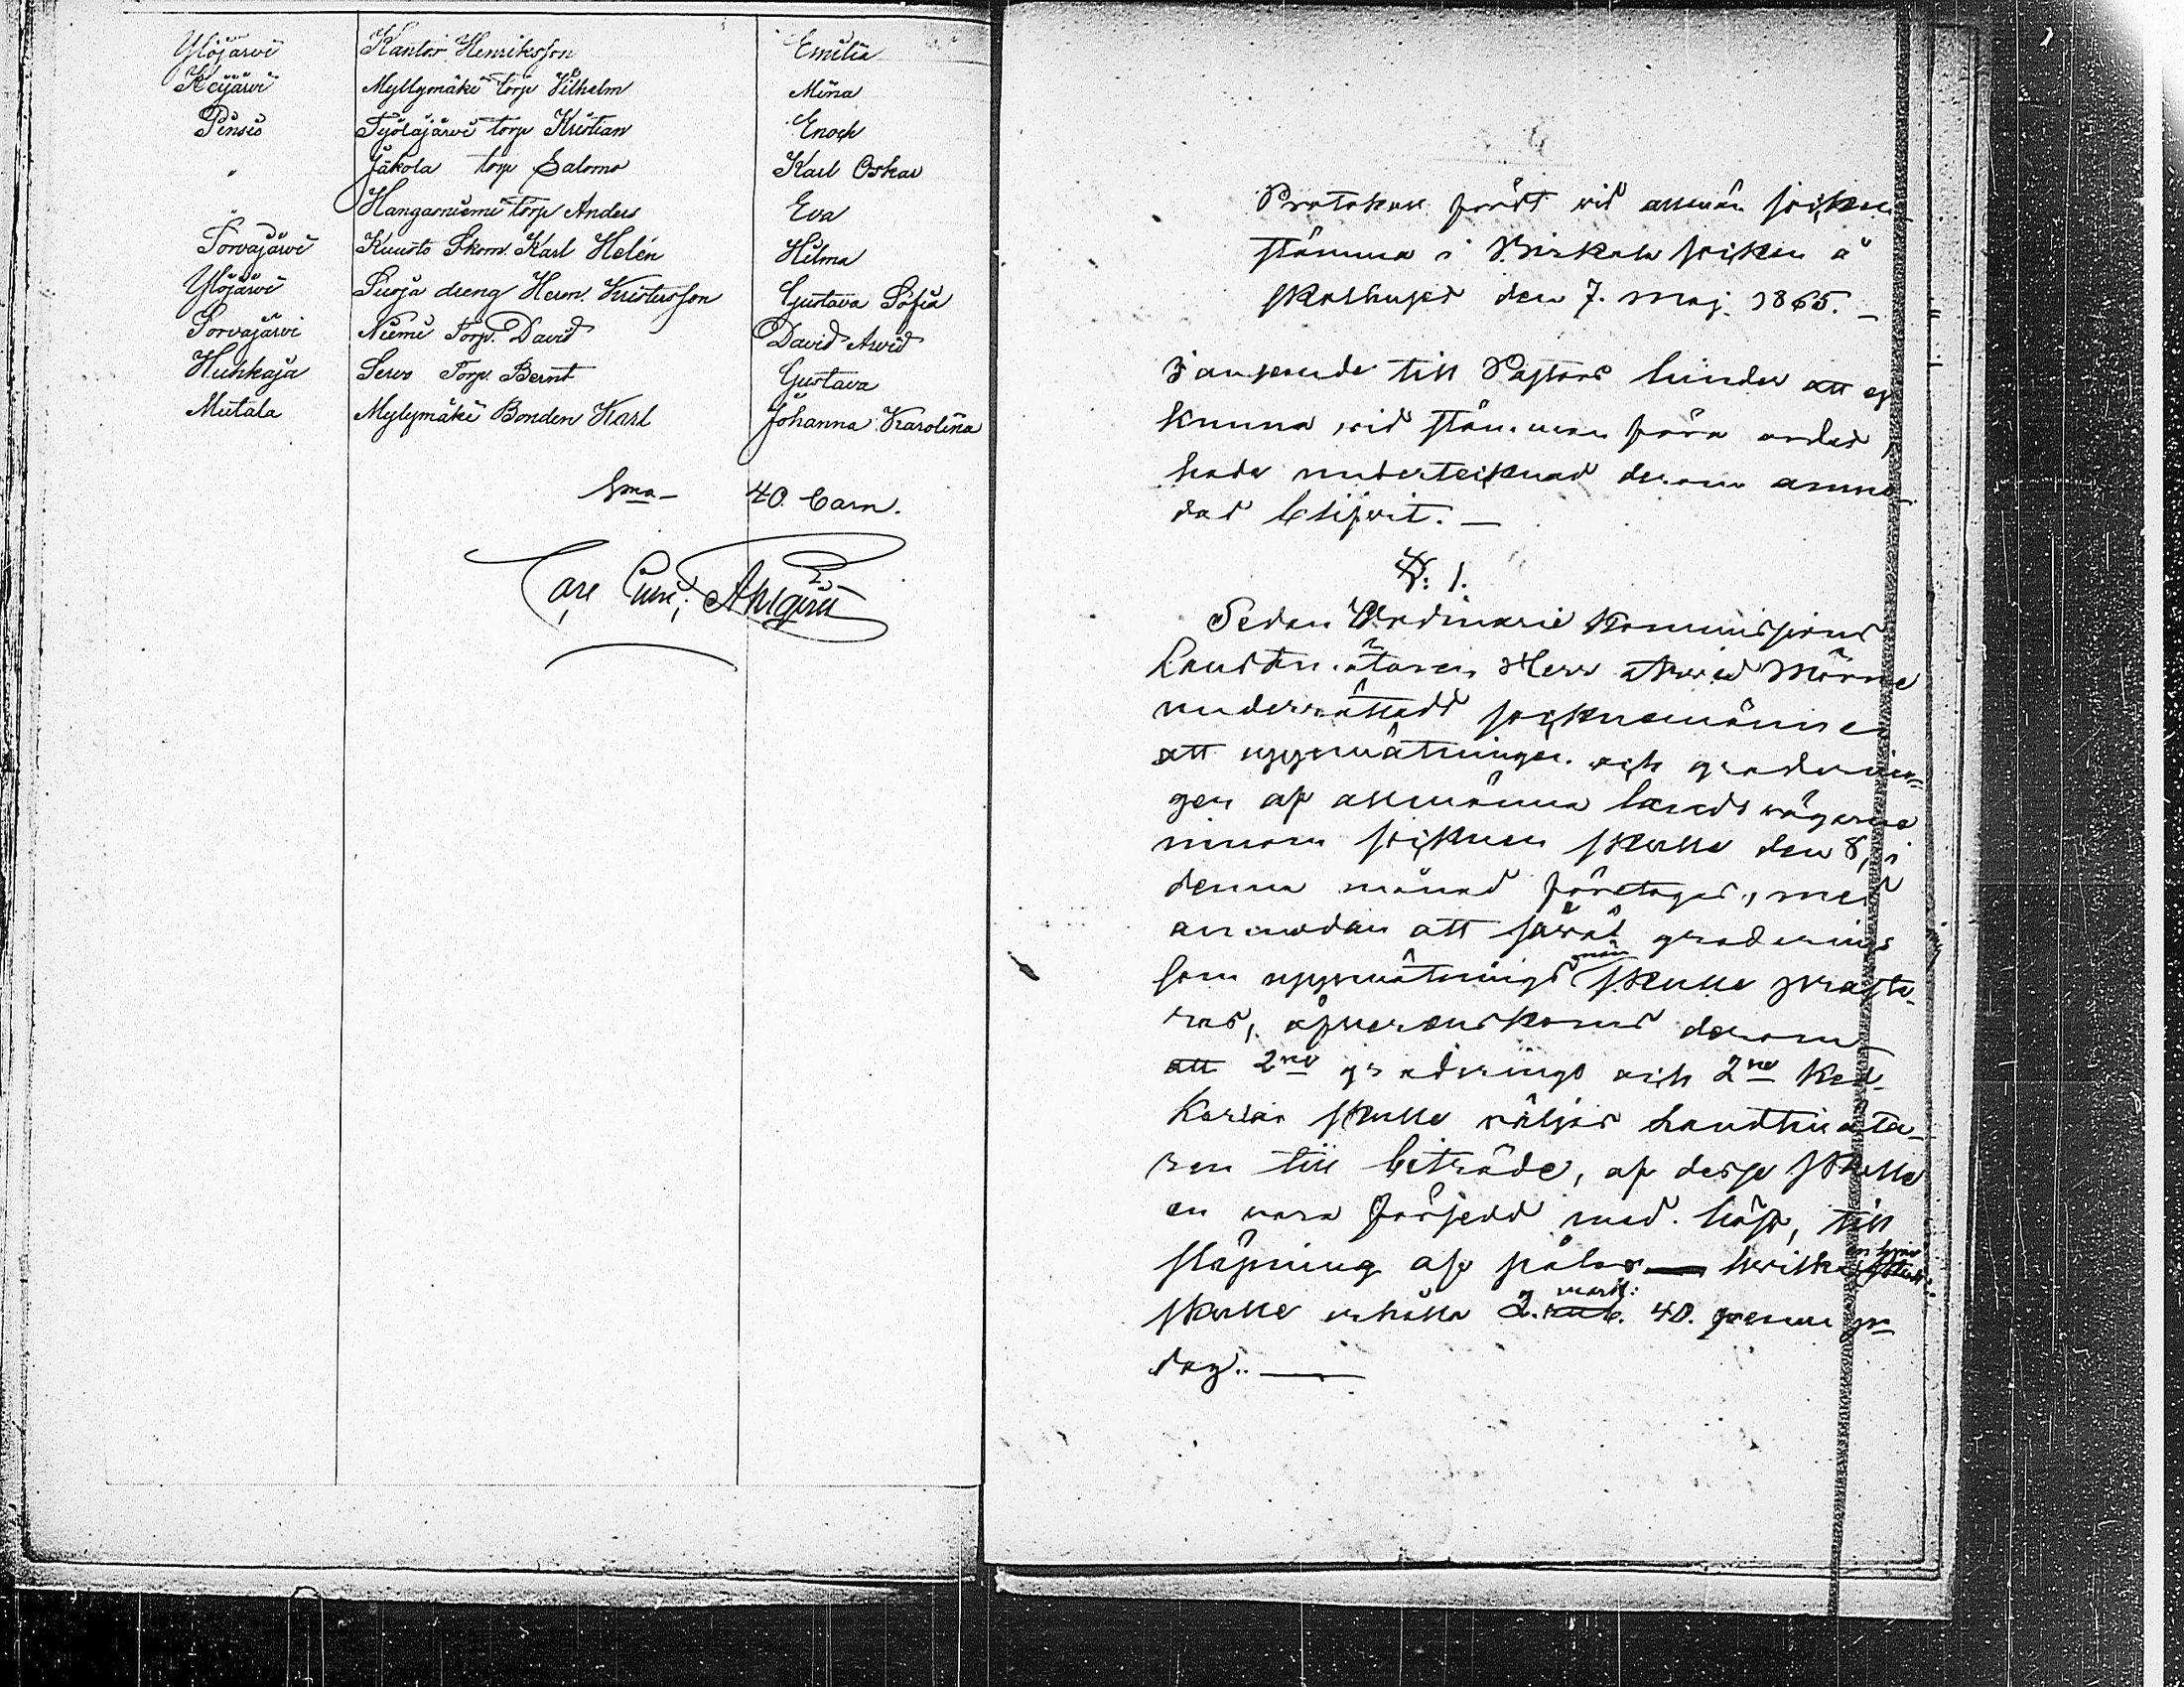 Ylöjärvi Kantor Henriksson Emilia
Keijärvi Myllymäki torp Vilhelm Mina
Pensiö Työläjärvi torp Kristian Enoch
" Jäkola torp Salomo Karl Oskar
" Hangasniemi torp Anders Eva
Sorvajärvi Kuusto Skom. Karl Helén Hilma
Ylöjärvi Suoja dreng Herm. Kristersson Gustava Sofia
Sorvajärvi Niemi Torp. David David Arvid
Huhkaja Servo Torp. Bernt Gustava
Mutala Mylymäki Bonden Karl Johanna Karolina
Sma 40. barn.
Carl Ahlgren
Protokoll fördt vid allmän socken-
stämma i Birkala socken å
sockhuset den 7. Maj 1865.
I anseende till Pastors hinder att ej
kunna vid stämman föra ordet,
hade undertecknad derom anmo-
dad blifvit.
§: 1.
Sedan Ordinarie Kommissions
Landtmätaren Herr Arvid Mörne
underrättadt socknemännen
att uppmätningen och graderin-
gen af allmänna landsvägarne
innom socknen skulle den 8, i
denna månad företagas, med
anmodan att såväl graderings
som uppmätnings män skulle præste-
ras, öfverenskoms derom
att 2ne graderings och 2ne Ked-
karlar skulle väljas Landtmäta-
ren till biträde, af desse skulle
en vara försedd med häst, till
släpning af pålar hvilka
skulle erhålla 2. mark: 40. penni pr
dag.